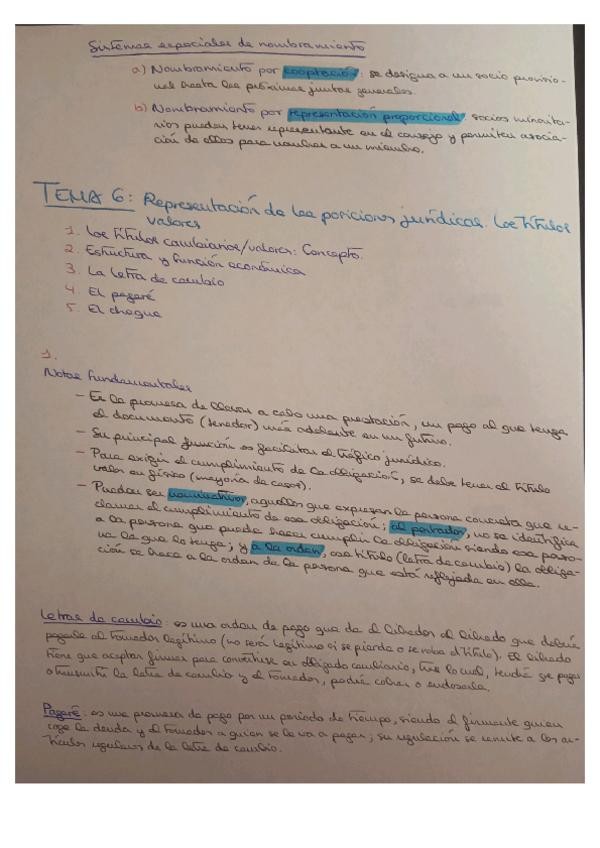 Sistemas especiales de nombramiento
a) Nombramiento por cooptación: se designa a un socio provisio-
nal hasta las próximas juntas generales.
b) Nombramiento por representación proporcional: socios minorita-
rios puedan tener representante en el consejo y permiten asocia-
ción de ellos para nombrar a un miembro.
TEMA 6: Representación de las posiciones jurídicas. Los títulos
valores
1. Los títulos cambiarios/valores: Concepto.
2. Estructura y función económica
3. La letra de cambio
4. El pagaré
5. El cheque
1.
Notas fundamentales
- Es la promesa de llevar a cabo una prestación, un pago al que tenga
el documento (tenedor) más adelante en un futuro.
- Su principal función es facilitar el tráfico jurídico.
- Para exigir el cumplimiento de la obligación, se debe tener el título
valor en físico (mayoría de casos).
- Pueden ser nominativos, aquellos que expresan la persona concreta que re-
clama el cumplimiento de esa obligación; al portador, no se identifica
a la persona que puede hacer cumplir la obligación siendo esa perso-
na la que lo tenga; y a la orden, ese título (letra de cambio) la obliga-
ción se hace a la orden de la persona que está reflejada en ella.
Letras de cambio: es una orden de pago que da el librador al librado que deberá
pagarla al tomador legítimo (no será legítimo si se pierda o se roba el título). El librado
tiene que aceptar firmar para convertirse en obligado cambiario, tras lo cual, tendrá que pagar
o transmitir la letra de cambio y el tomador, podrá cobrar o endosarla.
Pagaré: es una promesa de pago por un período de tiempo, siendo el firmante quien
coge la deuda y el tomador a quien se le va a pagar; su regulación se remite a los ar-
tículos reguladores de la letra de cambio.